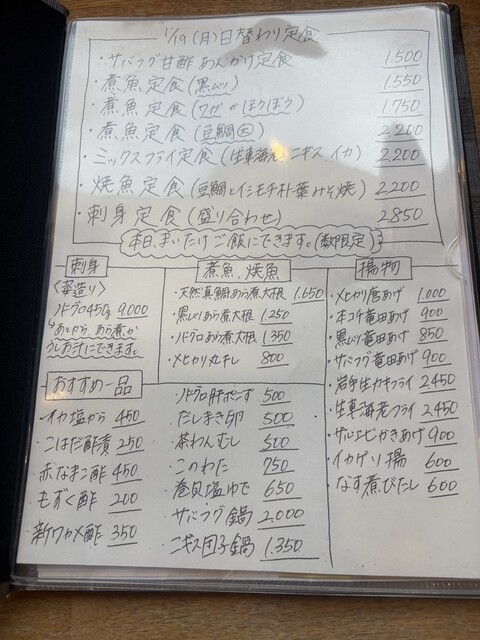 1/19(月)日替わり定食
・サバフグ甘酢あんかけ定食 1.500
・煮魚定食(黒ムツ) 1.550
・煮魚定食(ワガかほうぼう) 1.750
・煮魚定食(豆鯛大) 2.200
・ミックスフライ定食(生車海老、ニギス、イカ) 2.200
・焼魚定食(豆鯛とイシモチ朴葉みそ焼) 2.200
・刺身定食(盛り合わせ) 2850
本日、まいたけご飯にできます。(数限定)
刺身
〈姿造り〉
ノドグロ450g 9.000
あとから、あら煮か
うしお汁にできます。
煮魚、焼魚
・天然真鯛あら煮大根 1.650
・黒ムツあら煮大根 1.250
・ノドグロあら煮大根 1.350
・メヒカリ丸干し 800
揚物
・メヒカリ唐あげ 1.000
・本コチ竜田あげ 900
・黒ムツ竜田あげ 850
・サバフグ竜田あげ 900
・岩手生カキフライ 2.450
・生車海老フライ 2.450
・サルエビかきあげ 900
・イカゲソ揚 600
・なす煮びたし 600
おすすめ一品
・イカ塩から 450
・こはだ酢漬 250
・赤なまこ酢 450
・もずく酢 200
・新ワカメ酢 350
・ノドグロ肝ポン酢 500
・だしまき卵 500
・茶わんむし 500
・このわた 750
・巻貝塩ゆで 650
・サバフグ鍋 2.000
・ニギス団子鍋 1.350